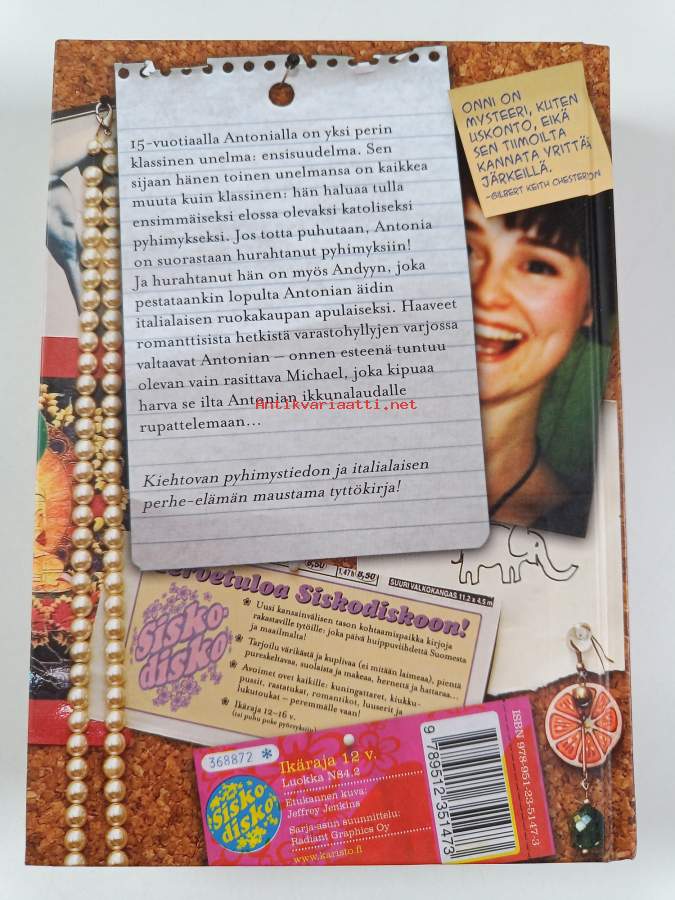 15-vuotiaalla Antonialla on yksi perin
klassinen unelma: ensisuudelma. Sen
sijaan hänen toinen unelmansa on kaikkea
muuta kuin klassinen: hän haluaa tulla
ensimmäiseksi elossa olevaksi katoliseksi
pyhimykseksi. Jos totta puhutaan, Antonia
on suorastaan hurahtanut pyhimyksiin!
Ja hurahtanut hän on myös Andyyn, joka
pestataankin lopulta Antonian äidin
italialaisen ruokakaupan apulaiseksi. Haaveet
romanttisista hetkistä varastohyllyjen varjossa
valtaavat Antonian – onnen esteenä tuntuu
olevan vain rasittava Michael, joka kipuaa
harva se ilta Antonian ikkunalaudalle
rupattelemaan...
Kiehtovan pyhimystiedon ja italialaisen
perhe-elämän maustama tyttökirja!
Antikvariaatti.net
ONNI ON
MYSTEERI, KUTEN
USKONTO, EIKÄ
SEN TIIMOILTA
KANNATA YRITTÄÄ
JÄRKEILLÄ.
-GILBERT KEITH CHESTERTON
8,50
1,47h 8,50
SUURI VALKOKANGAS 11,2 x 4,5 m
Siskodiskoon!
Sisko-
disko
Uusi kansainvälisen tason kohtaamispaikka kirjoja
rakastaville tytöille: joka päivä huippuviihdettä Suomesta
ja maailmalta!
Tarjoilu värikästä ja kuplivaa (ei mitään laimeaa), pientä
pureskeltavaa, suolaista ja makeaa, hernettä ja hattaraa...
Avoimet ovet kaikille: kuningattaret, kiukku-
pussit, rastatukat, romantikot, luuserit ja
lukutoukat – peremmälle vaan!
Ikäraja 12–16 v.
(tai puhu poke pyörryksiin)
368872 *
Sisko-
disko
Ikäraja 12 v.
Luokka N84.2
Etukannen kuva:
Jeffrey Jenkins
Sarja-asun suunnittelu:
Radiant Graphics Oy
www.karisto.fi
9 789512 351473
ISBN 978-951-23-5147-3